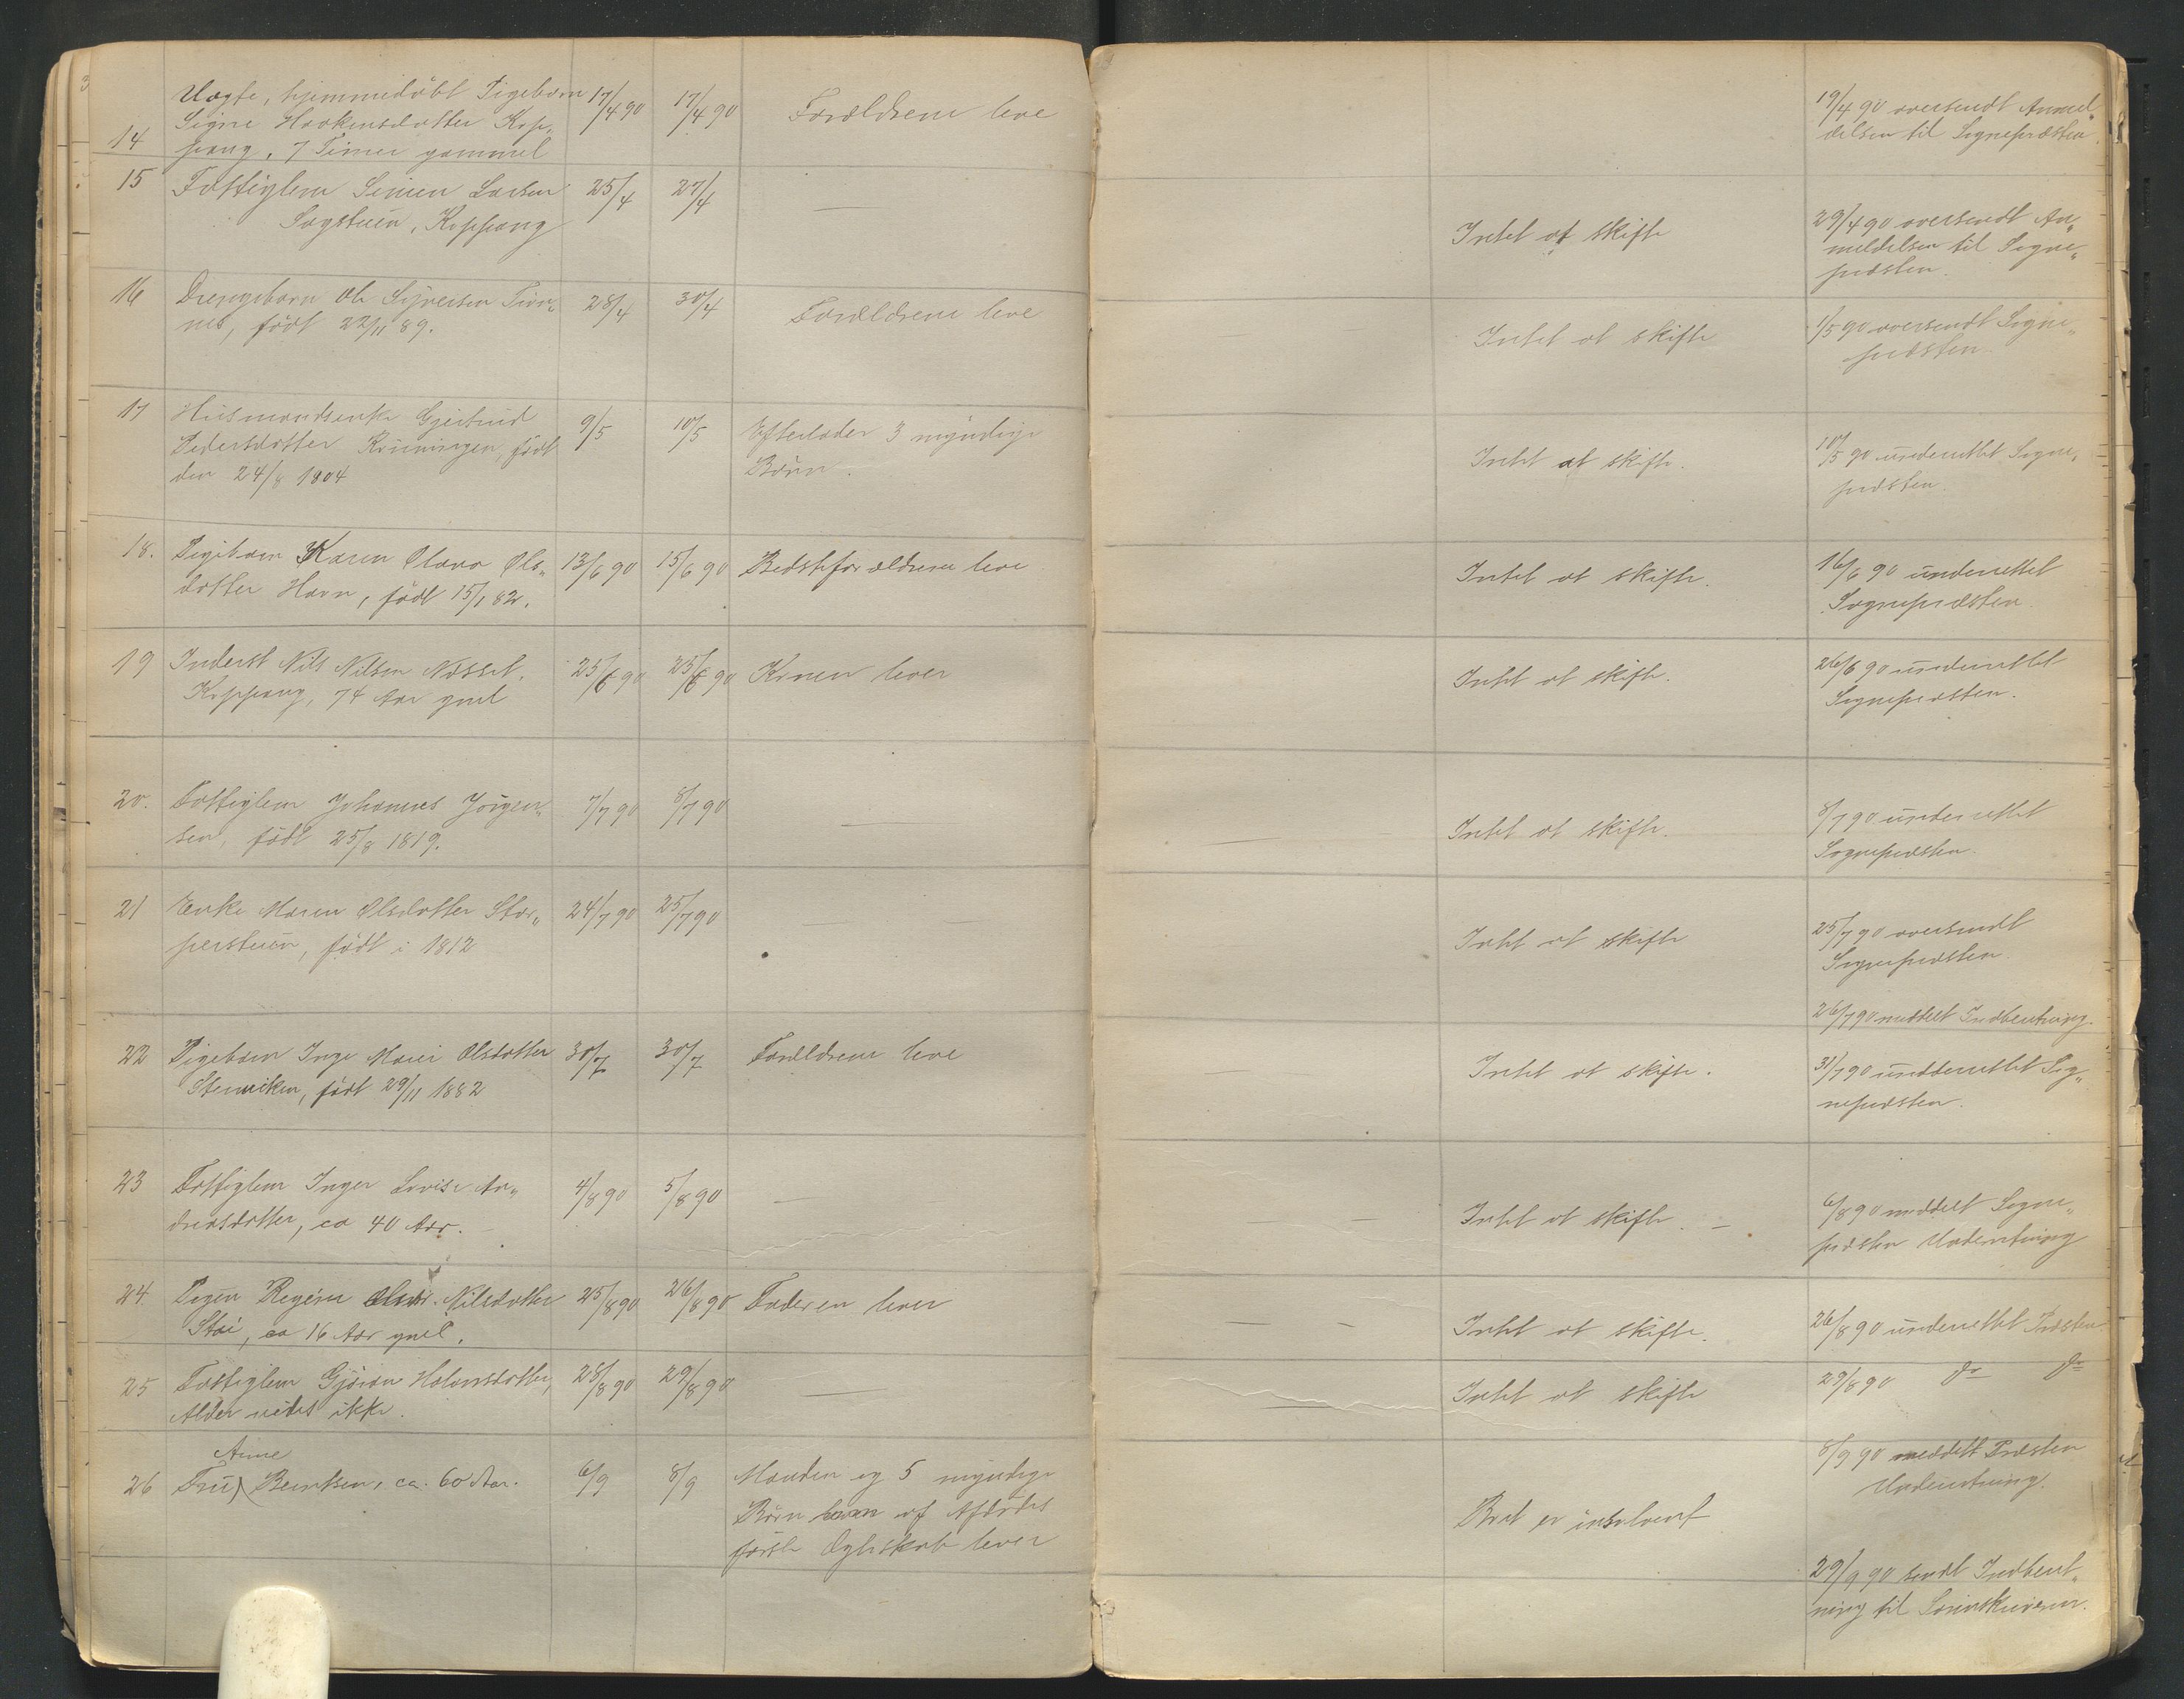 Uægte, hjemmedøbt Pigebarn 17/4 90 17/4 90 Forældrene leve 19/4 90 oversendt Anmel„
14 Signe Haakensdatter Kop„ delsen til Sognepræsten
pang, 7 Timer gammel
15 Fattiglem Simen Larsen 25/4 27/4 —
Sagstuen, Koppang Intet at skifte 29/4 90 oversendt An„
meldelsen til Sogne„
præsten.
16 Drengebarn Ole Syversen 28/4 30/4 Forældrene leve Intet at skifte 1/5 90 oversendt Sogne„
nes, født 22/11 89. præsten.
17 Husmandsenke Gjertrud 9/5 10/5 Efterlader 3 myndige Intet at skifte. 10/5 90 underrettet Sogne„
Pedersdatter født Børn. præsten.
den 24/8 1804
18. Pigebarn Karen Olava Ols„ 13/6 90 15/6 90 Bedsteforældrene leve Intet at skifte. 16/6 90 underrettet
datter født 15/1 82. Sognepræsten.
19 Inderst Nils Nilsen Næsset, 25/6 90 25/6 90 Konen lever Intet at skifte. 26/6 90 underrettet
Koppang, 74 Aar gml Sognepræsten.
20. Fattiglem Johannes Jørgen„ 7/7 90 8/7 90 — — Intet at skifte. 8/7 90 underrettet
sen, født 25/8 1819. Sognepræsten.
21 Enke Maren Olsdatter Stor„ 24/7 90 25/7 90 — Intet at skifte 25/7 90 oversendt
perstuen, født i 1812 Sognepræsten.
26/7 90 meddelt Indberetning.
22 Pigebarn Inge Marie Olsdatter 30/7 30/7 Forældrene leve — Intet at skifte. 31/7 90 underrettet Sog„
født 29/11 1882 nepræsten.
23 Fattiglem Inger Lovise An„ 4/8 90 5/8 90 — — — Intet at skifte. — 6/8 90 meddelt Sogne„
dreasdatter, ca 40 Aar. præsten Underretning
24. Pigen Regine Nilsdatter 25/8 90 26/8 90 Faderen lever — — Intet at skifte. 26/8 90 underrettet Præsten
Stai, ca 16 Aar gml.
25 Fattiglem Gjøran Halvorsdatter, 28/8 90 29/8 90 — — Intet at skifte 29/8 90 do do
Alder vides ikke.
Anne 8/9 90 meddelt Præsten
26 Fru Berntsen, ca. 60 Aar. 6/9 8/9 Manden og 5 myndige Underretning.
Børn af Afdødes Boet er insolvent
første Ægteskab lever
29/9 90 sendt Indberet„
ning til Sorenskriveren.